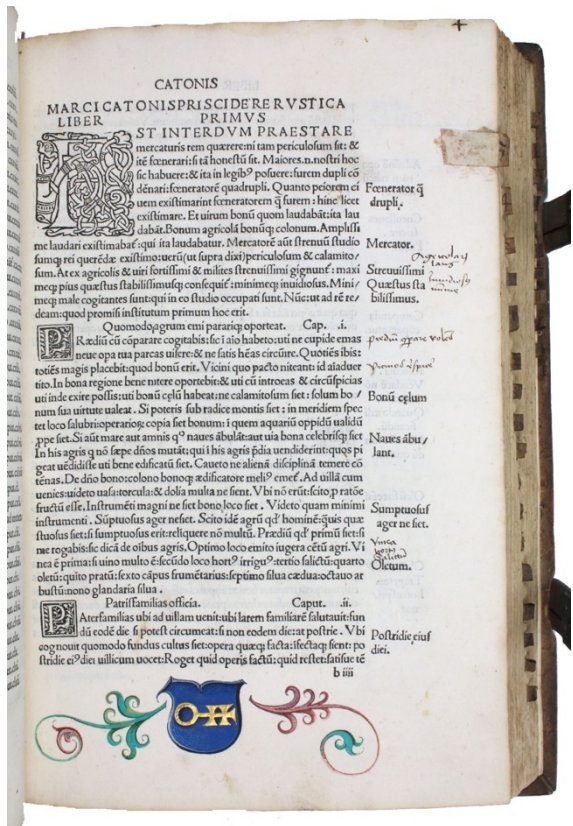 CATONIS
MARCI CATONIS PRISCI DE RE RVSTICA
LIBER PRIMUS
ST INTERDVM PRAESTARE
mercaturis rem quærere: ni tam periculosum sit: &
itē fœnerari: si tā honestū sit. Maiores .n. nostri hoc
sic habuere: & ita in legibꝰ posuere: furem dupli cō
dēnari: fœneratorē quadrupli. Quanto peiorem ci
uem existimarint fœneratorem q̄ furem: hinc licet
existimare. Et uirum bonū quom laudabāt: ita lau
dabāt. Bonum agricolā bonūq; colonum. Amplissi
me laudari existimabat̄: qui ita laudabatur. Mercatorē aūt strenuū studio
sumq; rei querēdæ existimo: uerū (ut supra dixi) periculosum & calamito/
sum. At ex agricolis & uiri fortissimi & milites strenuissimi gignunt̄: maxi
meq; pius quæstus stabilissimusq; consequit̄: minimeq; inuidiosus. Mini/
meq; male cogitantes sunt: qui in eo studio occupati sunt. Nūc: ut ad rē re/
deam: quod promisi institutum primum hoc erit.
Quomodo agrum emi parariq; oporteat. Cap. .i.
PRædiū cū cōparare cogitabis: sic ī aīo habeto: uti ne cupide emas
neue opa tua parcas uisere: & ne satis hēas circūire. Quotiēs ibis:
totiēs magis placebit: quod bonū erit. Vicini quo pacto niteant: id aīaduer
tito. In bona regione bene nitere oportebit: & uti cū introeas & circūspicias
uti inde exire possis: uti bonū cęlum habeat: ne calamitosum siet: solum bo/
num sua uirtute ualeat. Si poteris sub radice montis siet: in meridiem spec
tet loco salubri: operarioq; copia siet bonum: ī quem aquariū oppidū ualidū
ꝓpe siet. Si aūt mare aut amnis qͦ naues ābulāt: aut uia bona celebrisq; siet
In his agris q nō sæpe dn̄os mutāt: qui ī his agris p̄dia uendiderīt: quos pi
geat uēdidisse uti bene edificatū siet. Caueto ne alienā disciplinā temere cō
tēnas. De dn̄o bono: colono bonoq; ædificatore meliꝰ emet̄. Ad uillā cum
uenies: uideto uasa: torcula: & dolia multa ne sient. Vbi nō erūt: scito ꝓ ratōe
fructū esse. Instrumēti magni ne siet bono loco siet. Videto quam minimi
instrumenti. Sūptuosus ager ne siet. Scito idē agrū qd̓ hominē: quis quæ
stuosus siet: si sumptuosus erit: reliquere nō multū. Prædiū qd̓ primū siet: si
me rogabis: sic dicā de oībus agris. Optimo loco emito iugera cētū agri. Vi
nea ē prima: si uino multo ē: secūdo loco hortꝰ irriguꝰ: tertio salictū: quarto
oletū: quīto pratū: sexto cāpus frumētarius: septimo silua cædua: octauo ar
bustū: nono glandaria silua.
Patrisfamilias officia. Caput. .ii.
PAterfamilias ubi ad uillam uenit: ubi larem familiarē salutauit: fun
dū eodē die si potest circumeat: si non eodem die: at postrie. Vbi
cognouit quomodo fundus cultus siet: opera quæq; facta: īfectaq; sient: po
stridie eiꝰ diei uillicum uocet: Roget quid operis factū: quid restet: satisue tē
b iiii
Fœnerator q̄
drupli.
Mercator.
Streuuissimi
Quæstus sta
bilissimus.
Bonū cęlum
Naues ābu/
lant.
Sumptuosus
ager ne siet.
Oletum.
Postridie eius
diei.